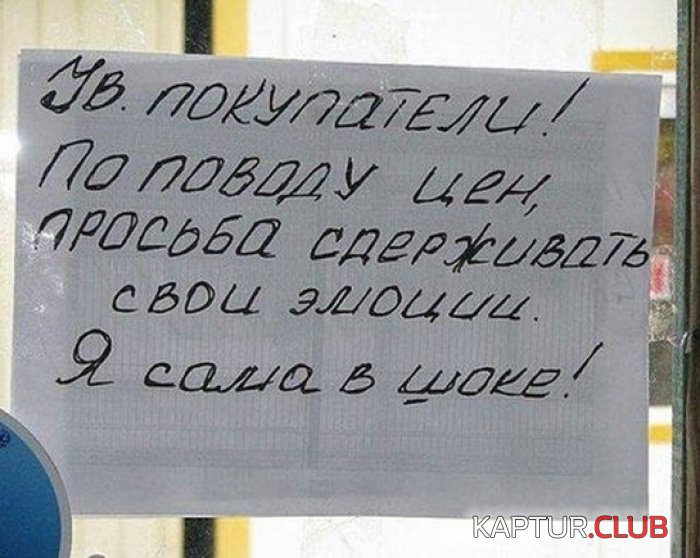 Ув. покупатели!
По поводу цен,
просьба сдерживать
свои эмоции.
Я сама в шоке!
KAPTUR.CLUB